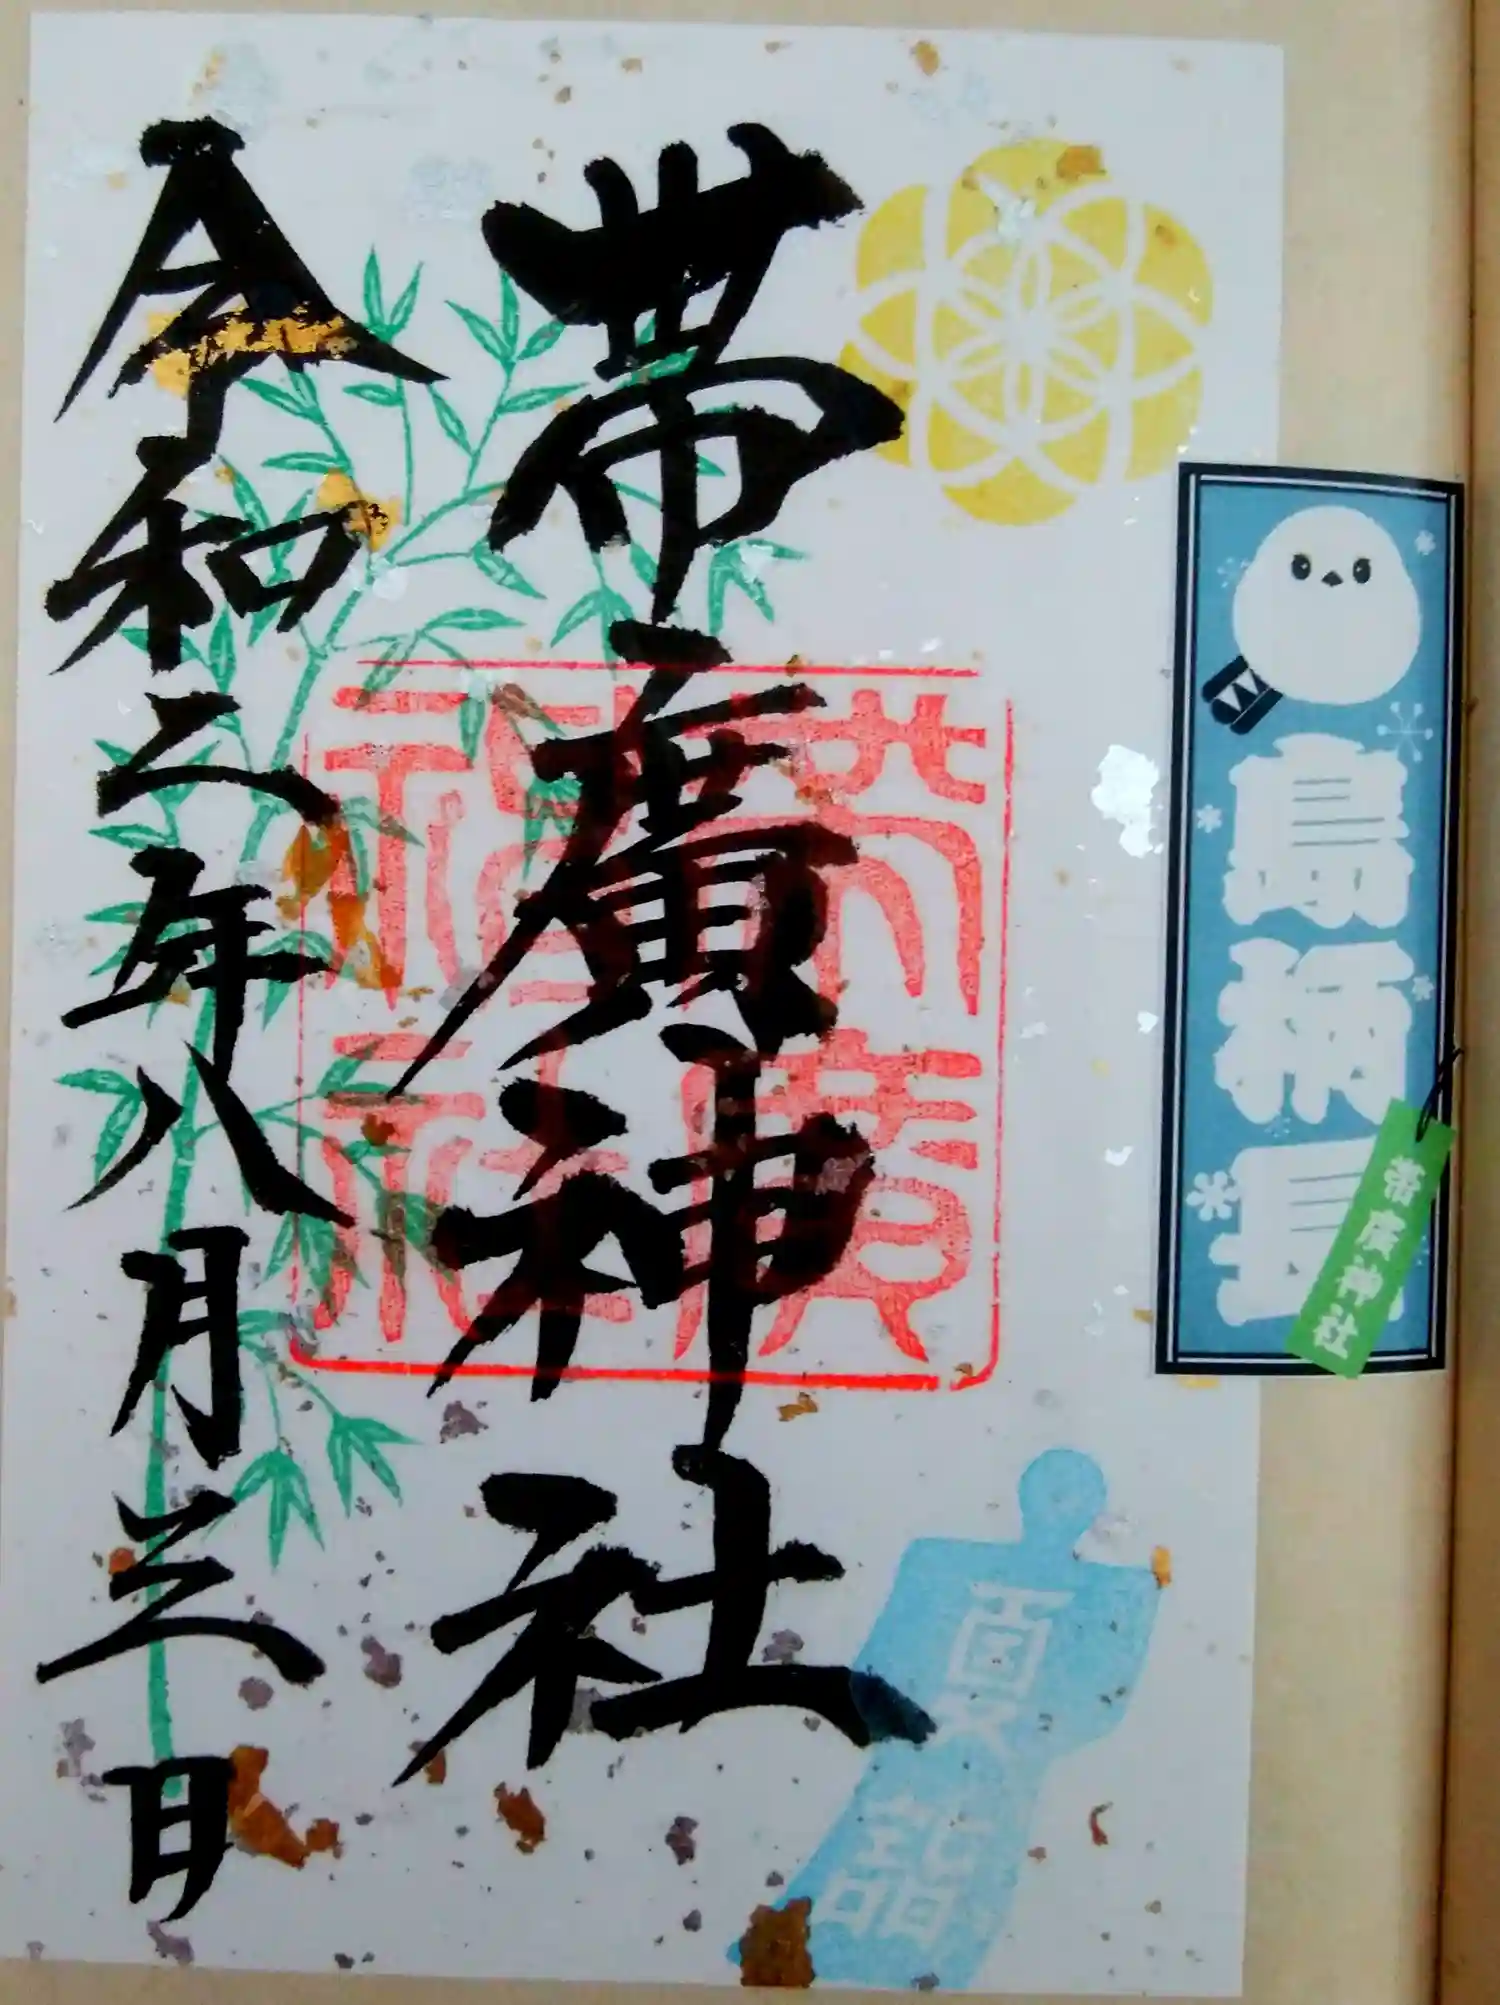 島柄長
帯廣神社
夏詣
帯廣神社
帯廣神社
令和二年八月三日